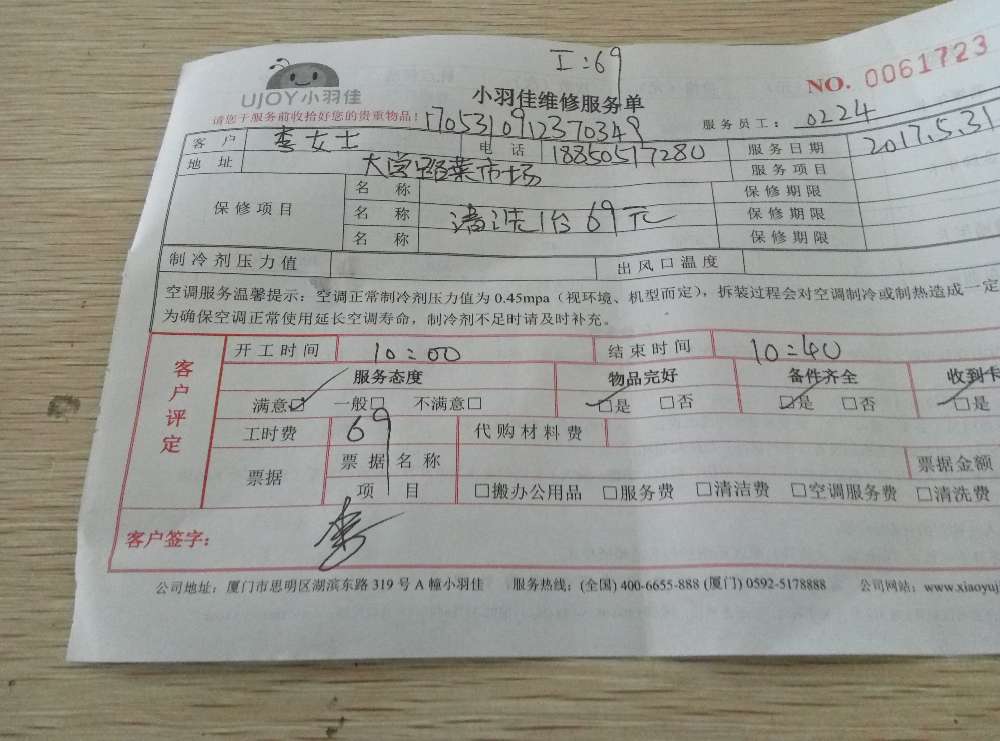 工:69
UJOY小羽佳
小羽佳维修服务单
NO. 0061723
请您于服务前收拾好您的贵重物品!
1705310912370349
服务员工: 0224
客 户 李女士 电 话 18850517280 服务日期 2017.5.31
地 址 大学路菜市场 服务项目
保修项目 名 称 保修期限
名 称 清洗1台 69元 保修期限
名 称 保修期限
制冷剂压力值 出风口温度
空调服务温馨提示:空调正常制冷剂压力值为 0.45mpa(视环境、机型而定),拆装过程会对空调制冷或制热造成一定
为确保空调正常使用延长空调寿命,制冷剂不足时请及时补充。
客户评定
开工时间 10:00 结束时间 10:40
服务态度 物品完好 备件齐全 收到卡
满意☑ 一般□ 不满意□ ☑是 □否 ☑是 □否 ☑是
工时费 69 代购材料费
票据 票据名称 票据金额
项 目 □搬办公用品 □服务费 □清洁费 □空调服务费 □清洗费
客户签字: 李
公司地址:厦门市思明区湖滨东路 319 号 A 幢小羽佳 服务热线:(全国) 400-6655-888 (厦门) 0592-5178888 公司网站:www.xiaoyuj